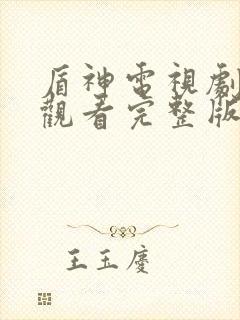 盾神電視劇
觀看完整版
王玉慶